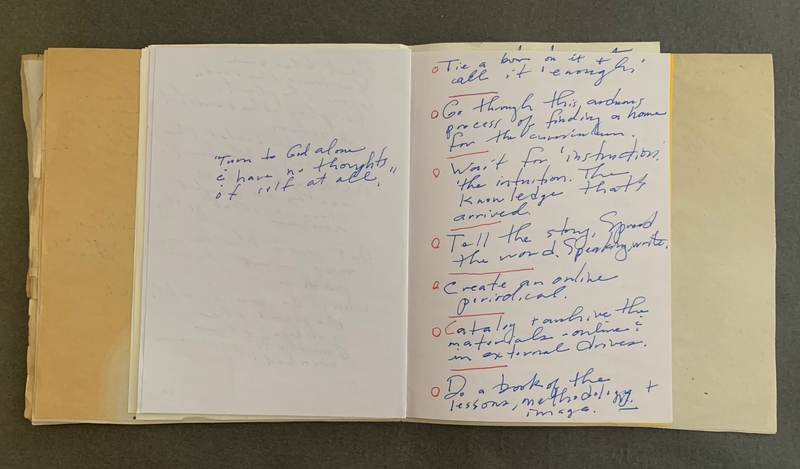 "Turn to God alone
& have no thoughts
of self at all."
Tie a bow on it +
call it 'enough'
Go through this arduous
process of finding a home
for the curriculum.
Wait for 'instruction.'
the intuition. The
knowledge that's
arrived.
Tell the story. Spread
the word. Speaking, write.
Create an online
periodical.
Catalog + archive the
materials - online &
in external drives.
Do a book of the
lessons, methodology, +
image.